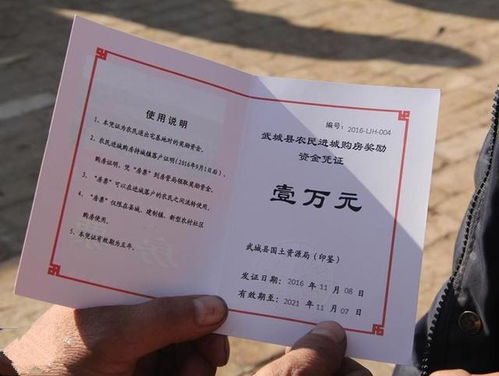 使用说明
1、本凭证为农民退出宅基地时的奖励资金。
2、农民进城购房持城镇落户证明(2016年9月1日后)、
购房证明,凭“房票”到房管局领取奖励资金。
3、“房票”可以在进城落户的农民之间流转使用。
4、“房票”仅限在县城、建制镇、新型农村社区
购房使用。
5、本凭证有效期为五年。
编号:2016-LJH-004
武城县农民进城购房奖励
资金凭证
壹万元
武城县国土资源局(印签)
发证日期:2016 年 11 月 08 日
有效期至:2021 年 11 月 07 日